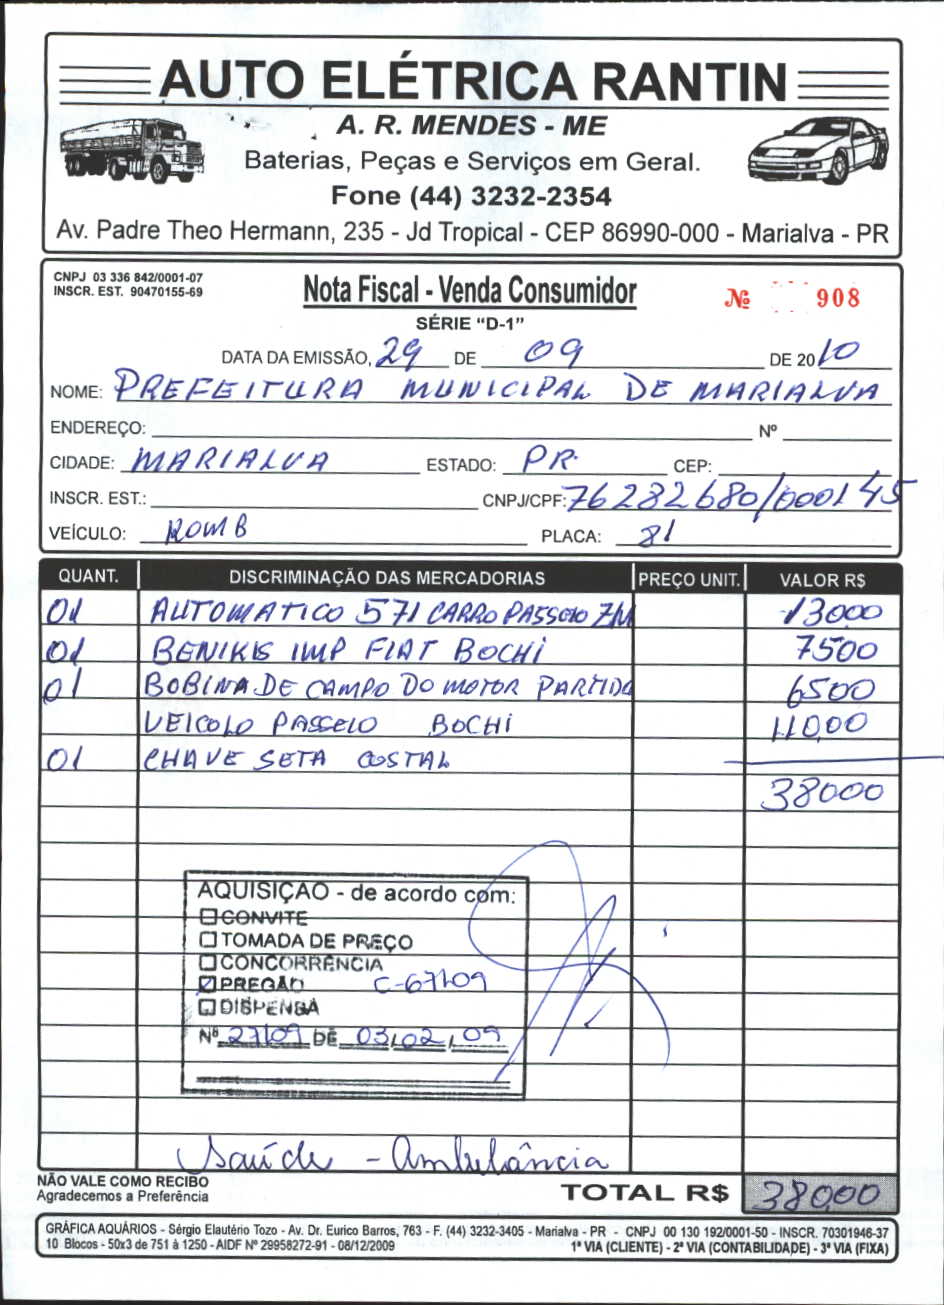 AUTO ELÉTRICA RANTIN
A. R. MENDES - ME
Baterias, Peças e Serviços em Geral.
Fone (44) 3232-2354
Av. Padre Theo Hermann, 235 - Jd Tropical - CEP 86990-000 - Marialva - PR
CNPJ 03 336 842/0001-07
INSCR. EST. 90470155-69
Nota Fiscal - Venda Consumidor
Nº 908
SÉRIE "D-1"
DATA DA EMISSÃO, 29 DE 09 DE 2010
NOME: PREFEITURA MUNICIPAL DE MARIALVA
ENDEREÇO: Nº
CIDADE: MARIALVA ESTADO: PR. CEP:
INSCR. EST.: CNPJ/CPF: 76282680/000145
VEÍCULO: PLACA: 81
QUANT. DISCRIMINAÇÃO DAS MERCADORIAS PREÇO UNIT. VALOR R$
01 AUTOMATICO 571 CARRO PASSEIO ZM 13000
01 BENIKIS IMP FIAT BOCHI 7500
01 BOBINA DE CAMPO DO MOTOR PARTIDA 6500
VEICOLO PASSEIO BOCHI 110,00
01 CHAVE SETA COSTAL
38000
AQUISIÇÃO - de acordo com:
CONVITE
TOMADA DE PREÇO
CONCORRÊNCIA
PREGÃO C-67/09
DISPENSA
Nº 27/09 DE 03/02/09
Saúde - Ambulância
NÃO VALE COMO RECIBO
Agradecemos a Preferência
TOTAL R$ 380,00
GRÁFICA AQUÁRIOS - Sérgio Elautério Tozo - Av. Dr. Eurico Barros, 763 - F. (44) 3232-3405 - Marialva - PR - CNPJ 00 130 192/0001-50 - INSCR. 70301946-37
10 Blocos - 50x3 de 751 à 1250 - AIDF Nº 29958272-91 - 08/12/2009 1ª VIA (CLIENTE) - 2ª VIA (CONTABILIDADE) - 3ª VIA (FIXA)